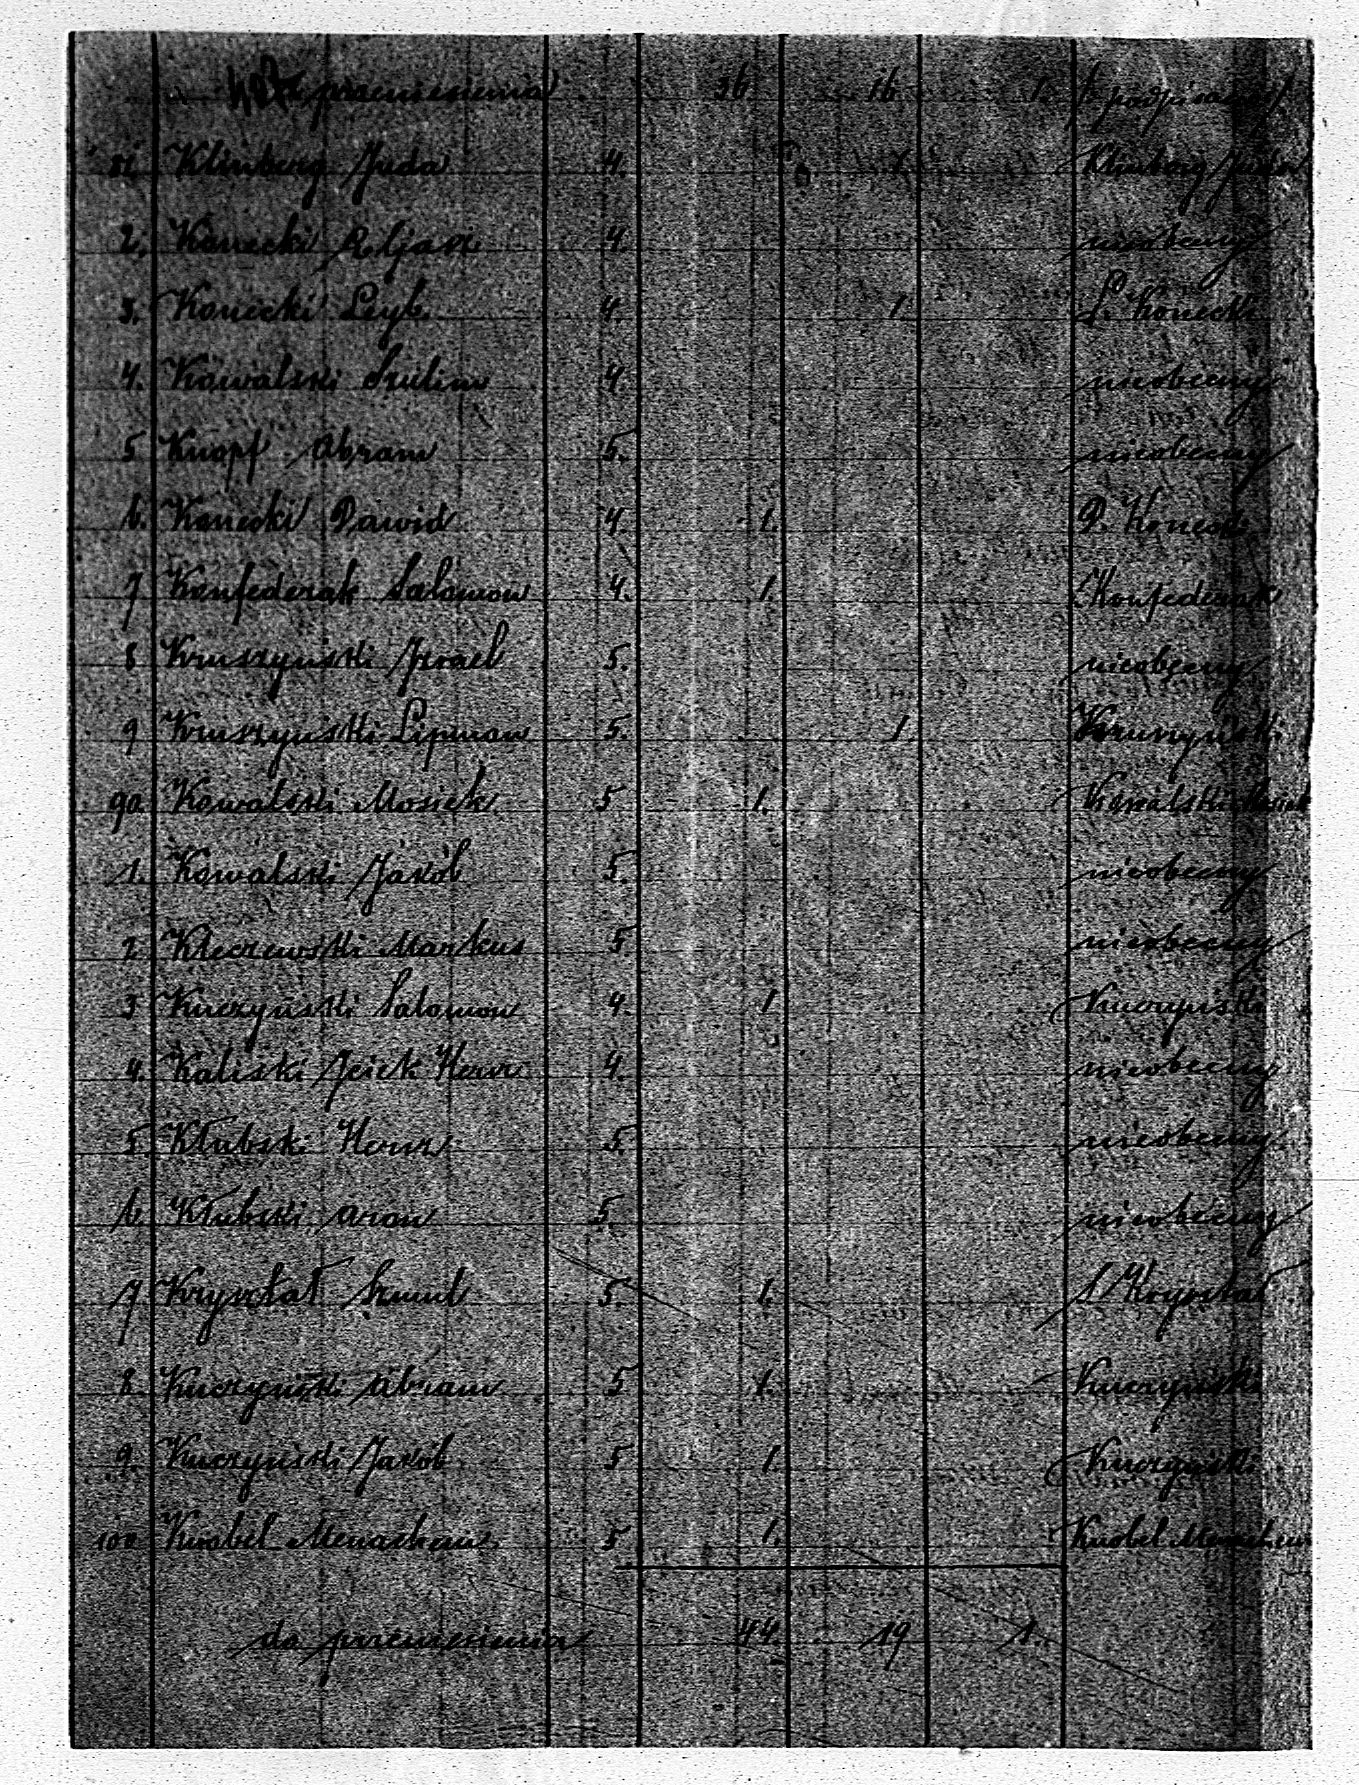 z przeniesienia 36 16 1. podpisano
81. Klinberg Juda 4. 1. Klinberg Juda
2. Konecki Eljasz 4 nieobecny
3. Konecki Leyb. 4. 1 L. Konecki
4. Kowalski Szulim 4 nieobecny
5 Knopf Abram 5. nieobecny
6. Konecki Dawid 4 1. D. Konecki
7 Konfederak Salomon 4. 1. Konfederak
8 Kruszyński Izrael 5. nieobecny
9 Kruszyński Lipman 5. 1 Kruszyński
90 Kowalski Mosiek 5 1. Kowalski Mosiek
1. Kowalski Jakób 5. nieobecny
2 Kleczewski Markus 5 nieobecny
3 Kuczyński Salomon 4. 1 Kuczyński
4. Kaliski Icick Hersz 4. nieobecny
5 Kłubski Hersz 5. nieobecny
6. Kłubski Aron 5. nieobecny
7 Kryształ Szmul 5. 1. S Kryształ
8 Kuczyński Abram 5 1. Kuczyński
9. Kuczyński Jakób 5 1. Kuczyński
100 Knobel Menachem 5 1. Knobel Menachem
do przeniesienia 44. 19 1.